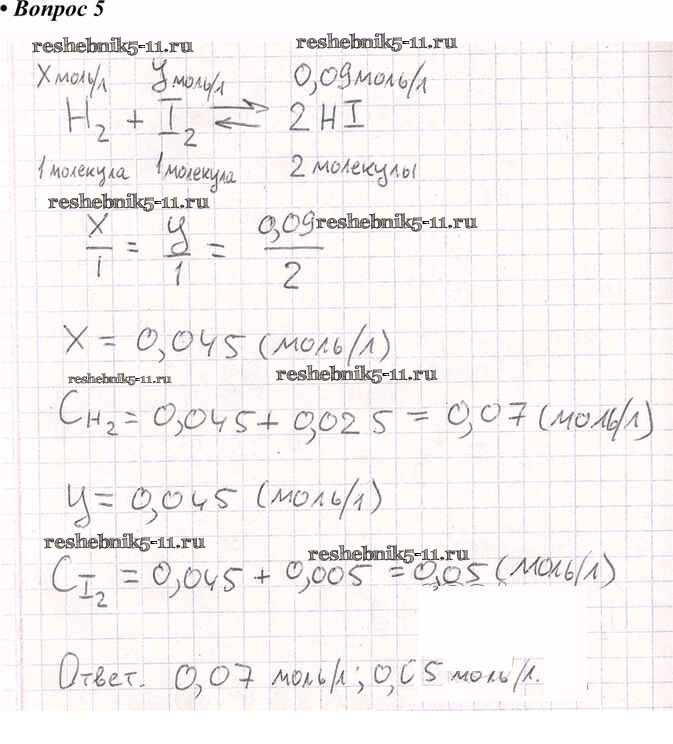 • Вопрос 5
reshebnik5-11.ru reshebnik5-11.ru
X моль/л y моль/л 0,09 моль/л
H₂ + I₂ ⇄ 2 HI
1 молекула 1 молекула 2 молекулы
reshebnik5-11.ru reshebnik5-11.ru
X/1 = y/1 = 0,09/2
X = 0,045 (моль/л)
reshebnik5-11.ru reshebnik5-11.ru
C H₂ = 0,045 + 0,025 = 0,07 (моль/л)
y = 0,045 (моль/л)
reshebnik5-11.ru reshebnik5-11.ru
C I₂ = 0,045 + 0,005 = 0,05 (моль/л)
Ответ. 0,07 моль/л; 0,05 моль/л.